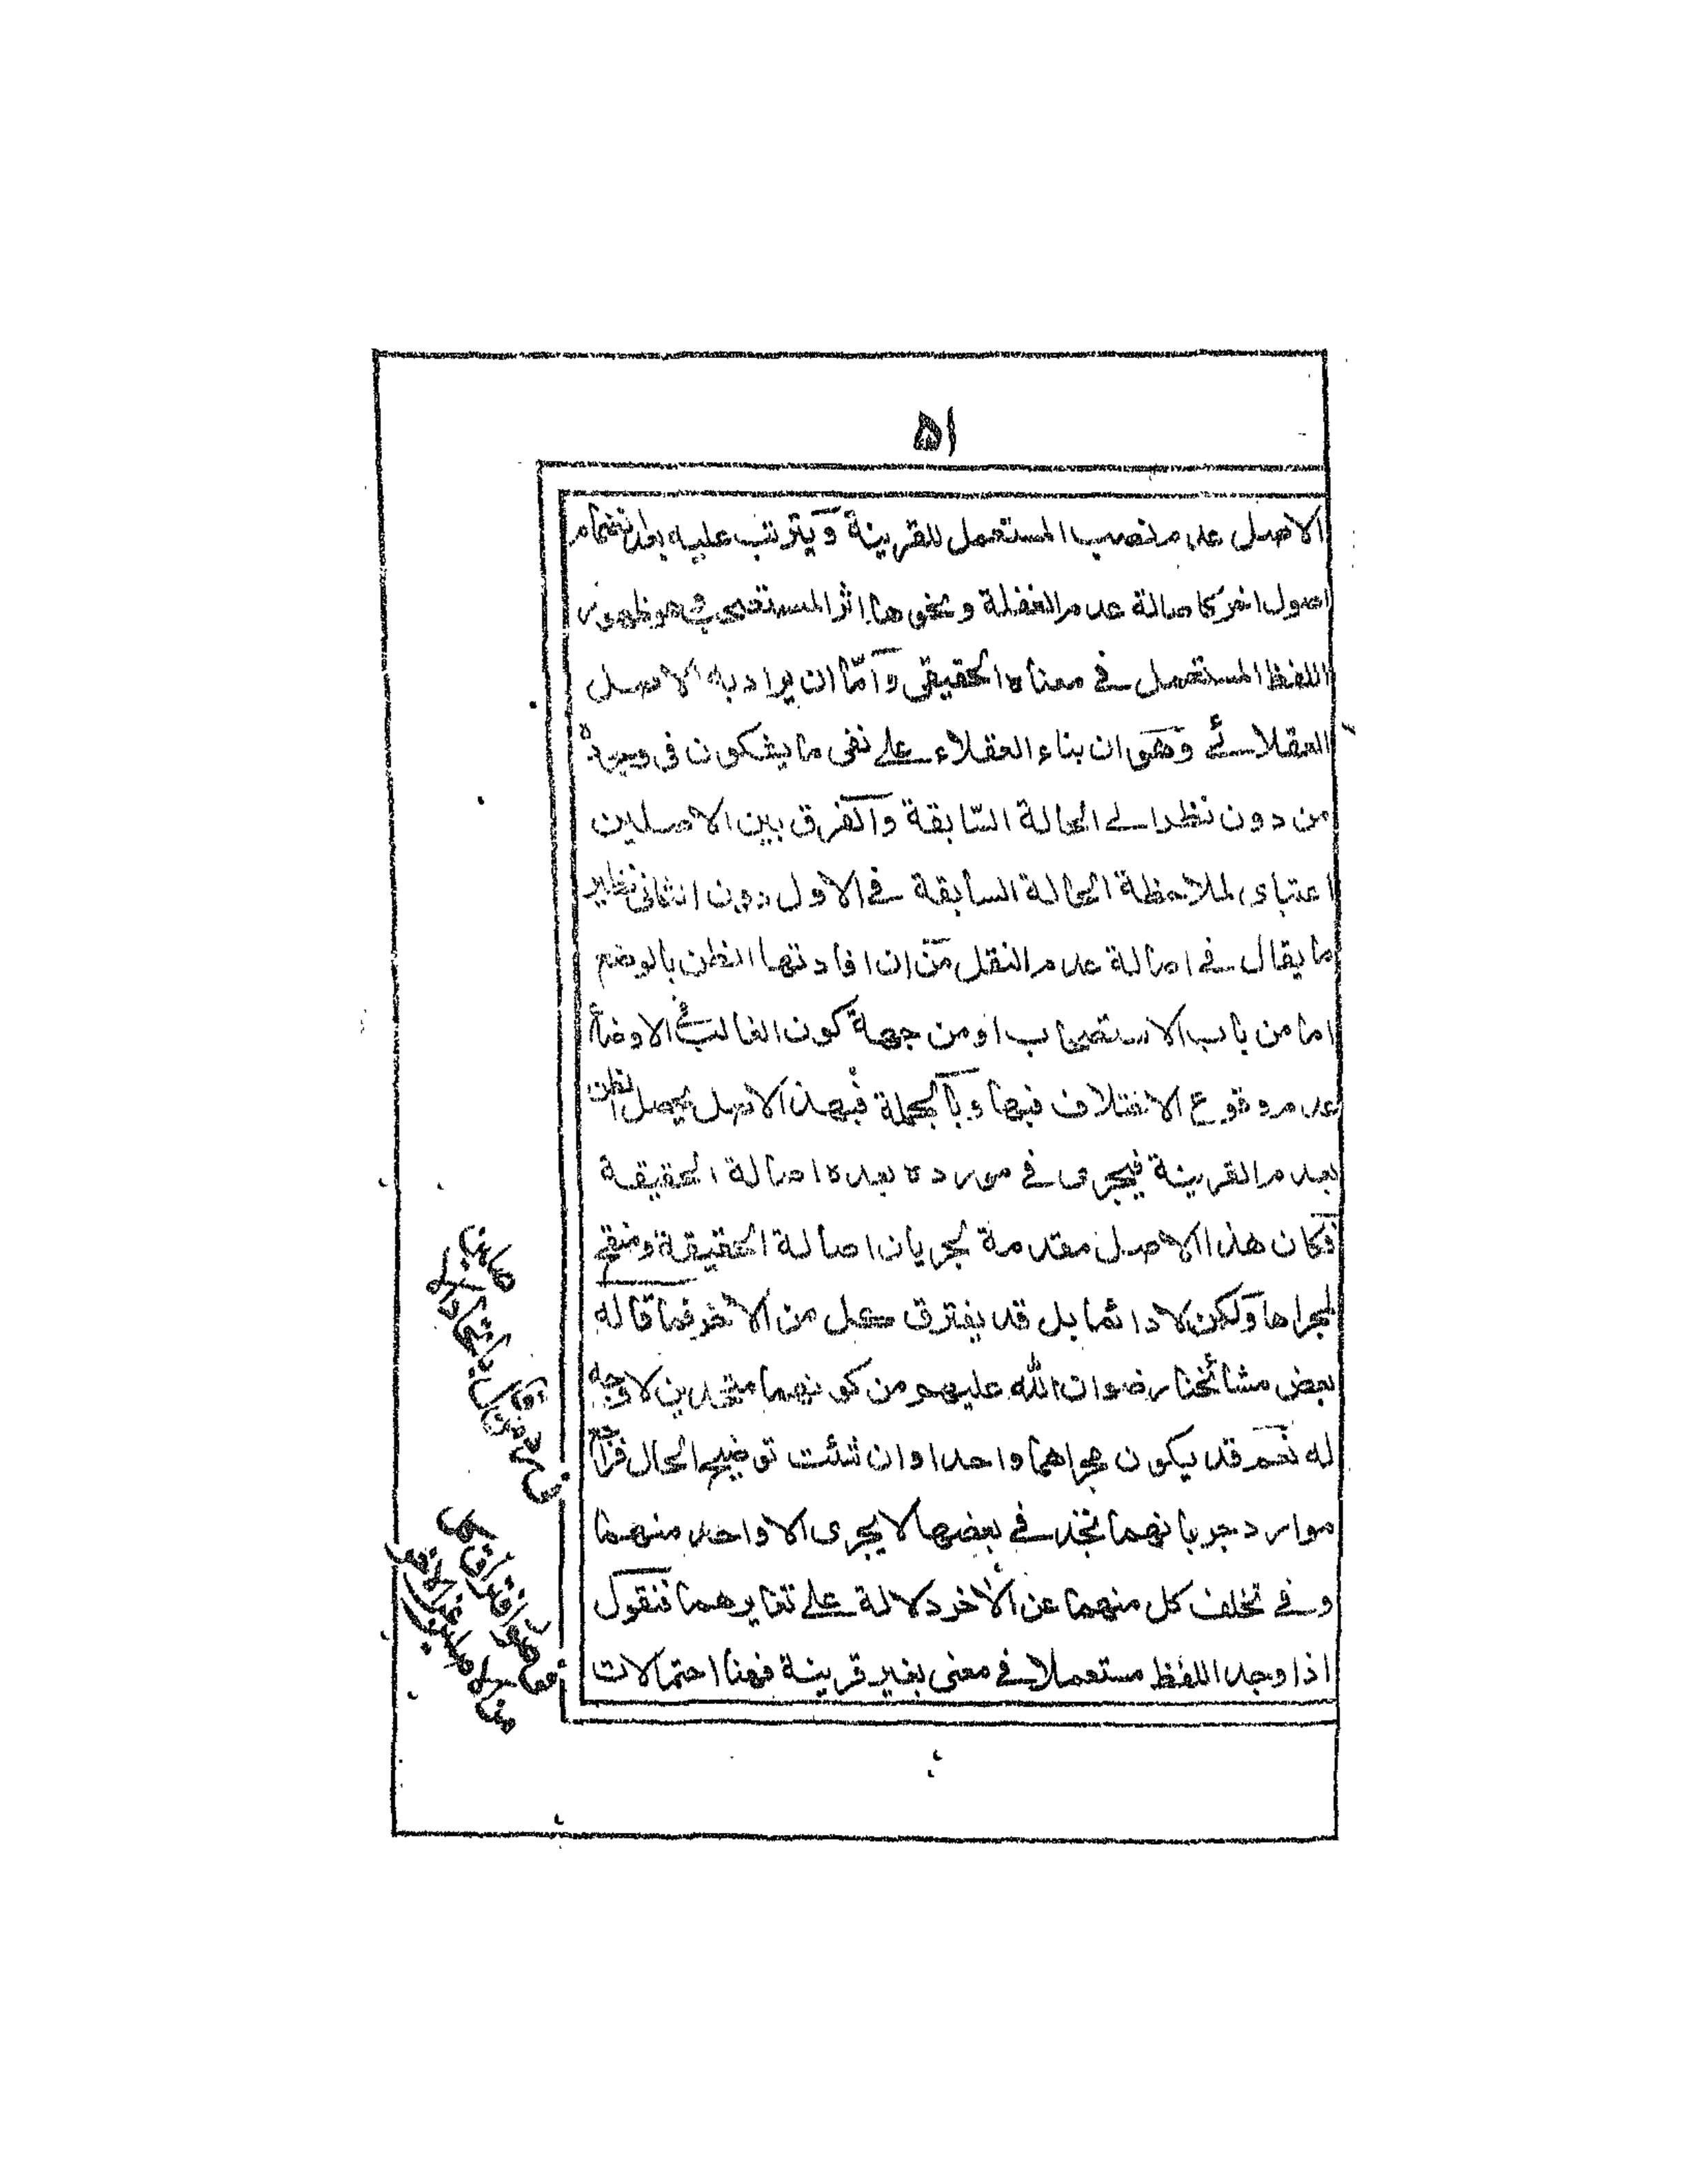 ۵۱
الاصل عدم نصب المستعمل للقرينة ويترتب عليه بعد انضمام
اصول اخر كاصالة عدم الغفلة ونحوها اثر المستصحب وهو ظهور
اللفظ المستعمل في معناه الحقيقى وامّا ان يراد به الاصل
العقلائے وهو ان بناء العقلاء علے نفى ما يشكون فى وجوده
من دون نظر الے الحالة السّابقة والفرق بين الاصلين
اعتبار لملاحظة الحالة السابقة فے الاول دون الثانى نظير
ما يقال فے اصالة عدم النقل من ان افادتها الظن بالوضع
اما من باب الاستصحاب او من جهة كون الغالب فے الاوضاع
عدم وقوع الاختلاف فيها وبالجملة فبهذا الاصل يحصل الظن
بعدم القرينة فيجرى فے مورده بعده اصالة الحقيقة
فكان هذا الاصل مقدمة لجريان اصالة الحقيقة ومنقح
لمجراها ولكن لا دائما بل قد يفترق كل من الاخر فما قاله
بعض مشائخنا رضوان الله عليهم من كونهما متحدين لا وجه
له نعم قد يكون مجراهما واحدا وان شئت توضيح الحال فراجع
موارد جريانهما تجد فے بعضها لا يجرى الا واحد منهما
وفے تخلف كل منهما عن الاخر دلالة علے تغايرهما فنقول
اذا وجد اللفظ مستعملا فے معنى بغير قرينة فهنا احتمالات